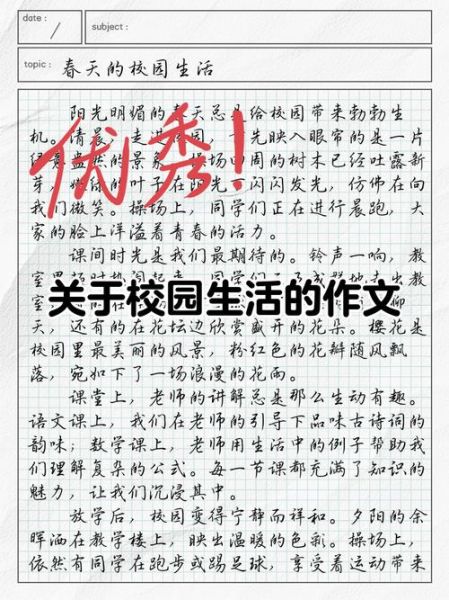 date :
subject :
topic : 春天的校园生活
阳光明媚的春天总是给校园带来勃勃生
机。清晨,走进校园,首先映入眼帘的是一片
绿意盎然的景象。操场四周的树木已经吐露新
芽,嫩绿的叶子在阳光下闪闪发光,仿佛在向
我们微笑。操场上,同学们正在进行晨跑,大
家的脸上洋溢着青春的活力。
课间时光是我们最期待的。铃声一响,教
室
优秀!
关于校园生活的作文
天,还有的在花坛边欣赏盛开的花朵。樱花是
校园里最美丽的风景,粉红色的花瓣随风飘
落,宛如下了一场浪漫的花雨。
课堂上,老师的讲解总是那么生动有趣。
语文课上,我们在老师的引导下品味古诗词的
韵味;数学课上,老师用生活中的例子帮助我
们理解复杂的公式。每一节课都充满了知识的
魅力,让我们沉浸其中。
放学后,校园变得宁静而祥和。夕阳的余
晖洒在教学楼上,映出温暖的色彩。操场上,
依然有同学在跑步或踢足球,享受着运动带来